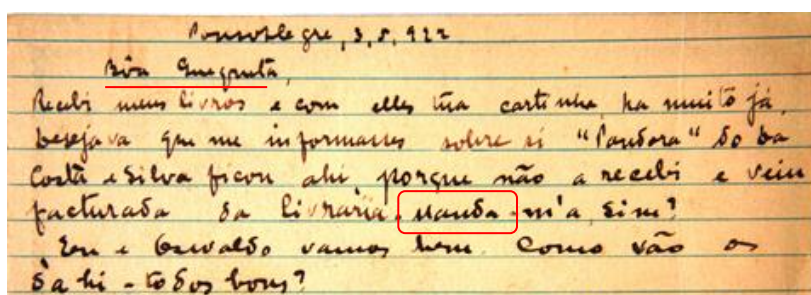 Pousoalegre, 3, 5, 922
Bôa Guegueta,
Recebi meus livros e com elles tua cartinha ha muito já
desejava que me informasses sobre si "Pandora" do Da
Costa e Silva ficou ahi porque não a recebi e veiu
facturada da livraria. Manda-m'a, sim?
Eu e Oswaldo vamos bem. Como vão os
d'ahi - todos bons?